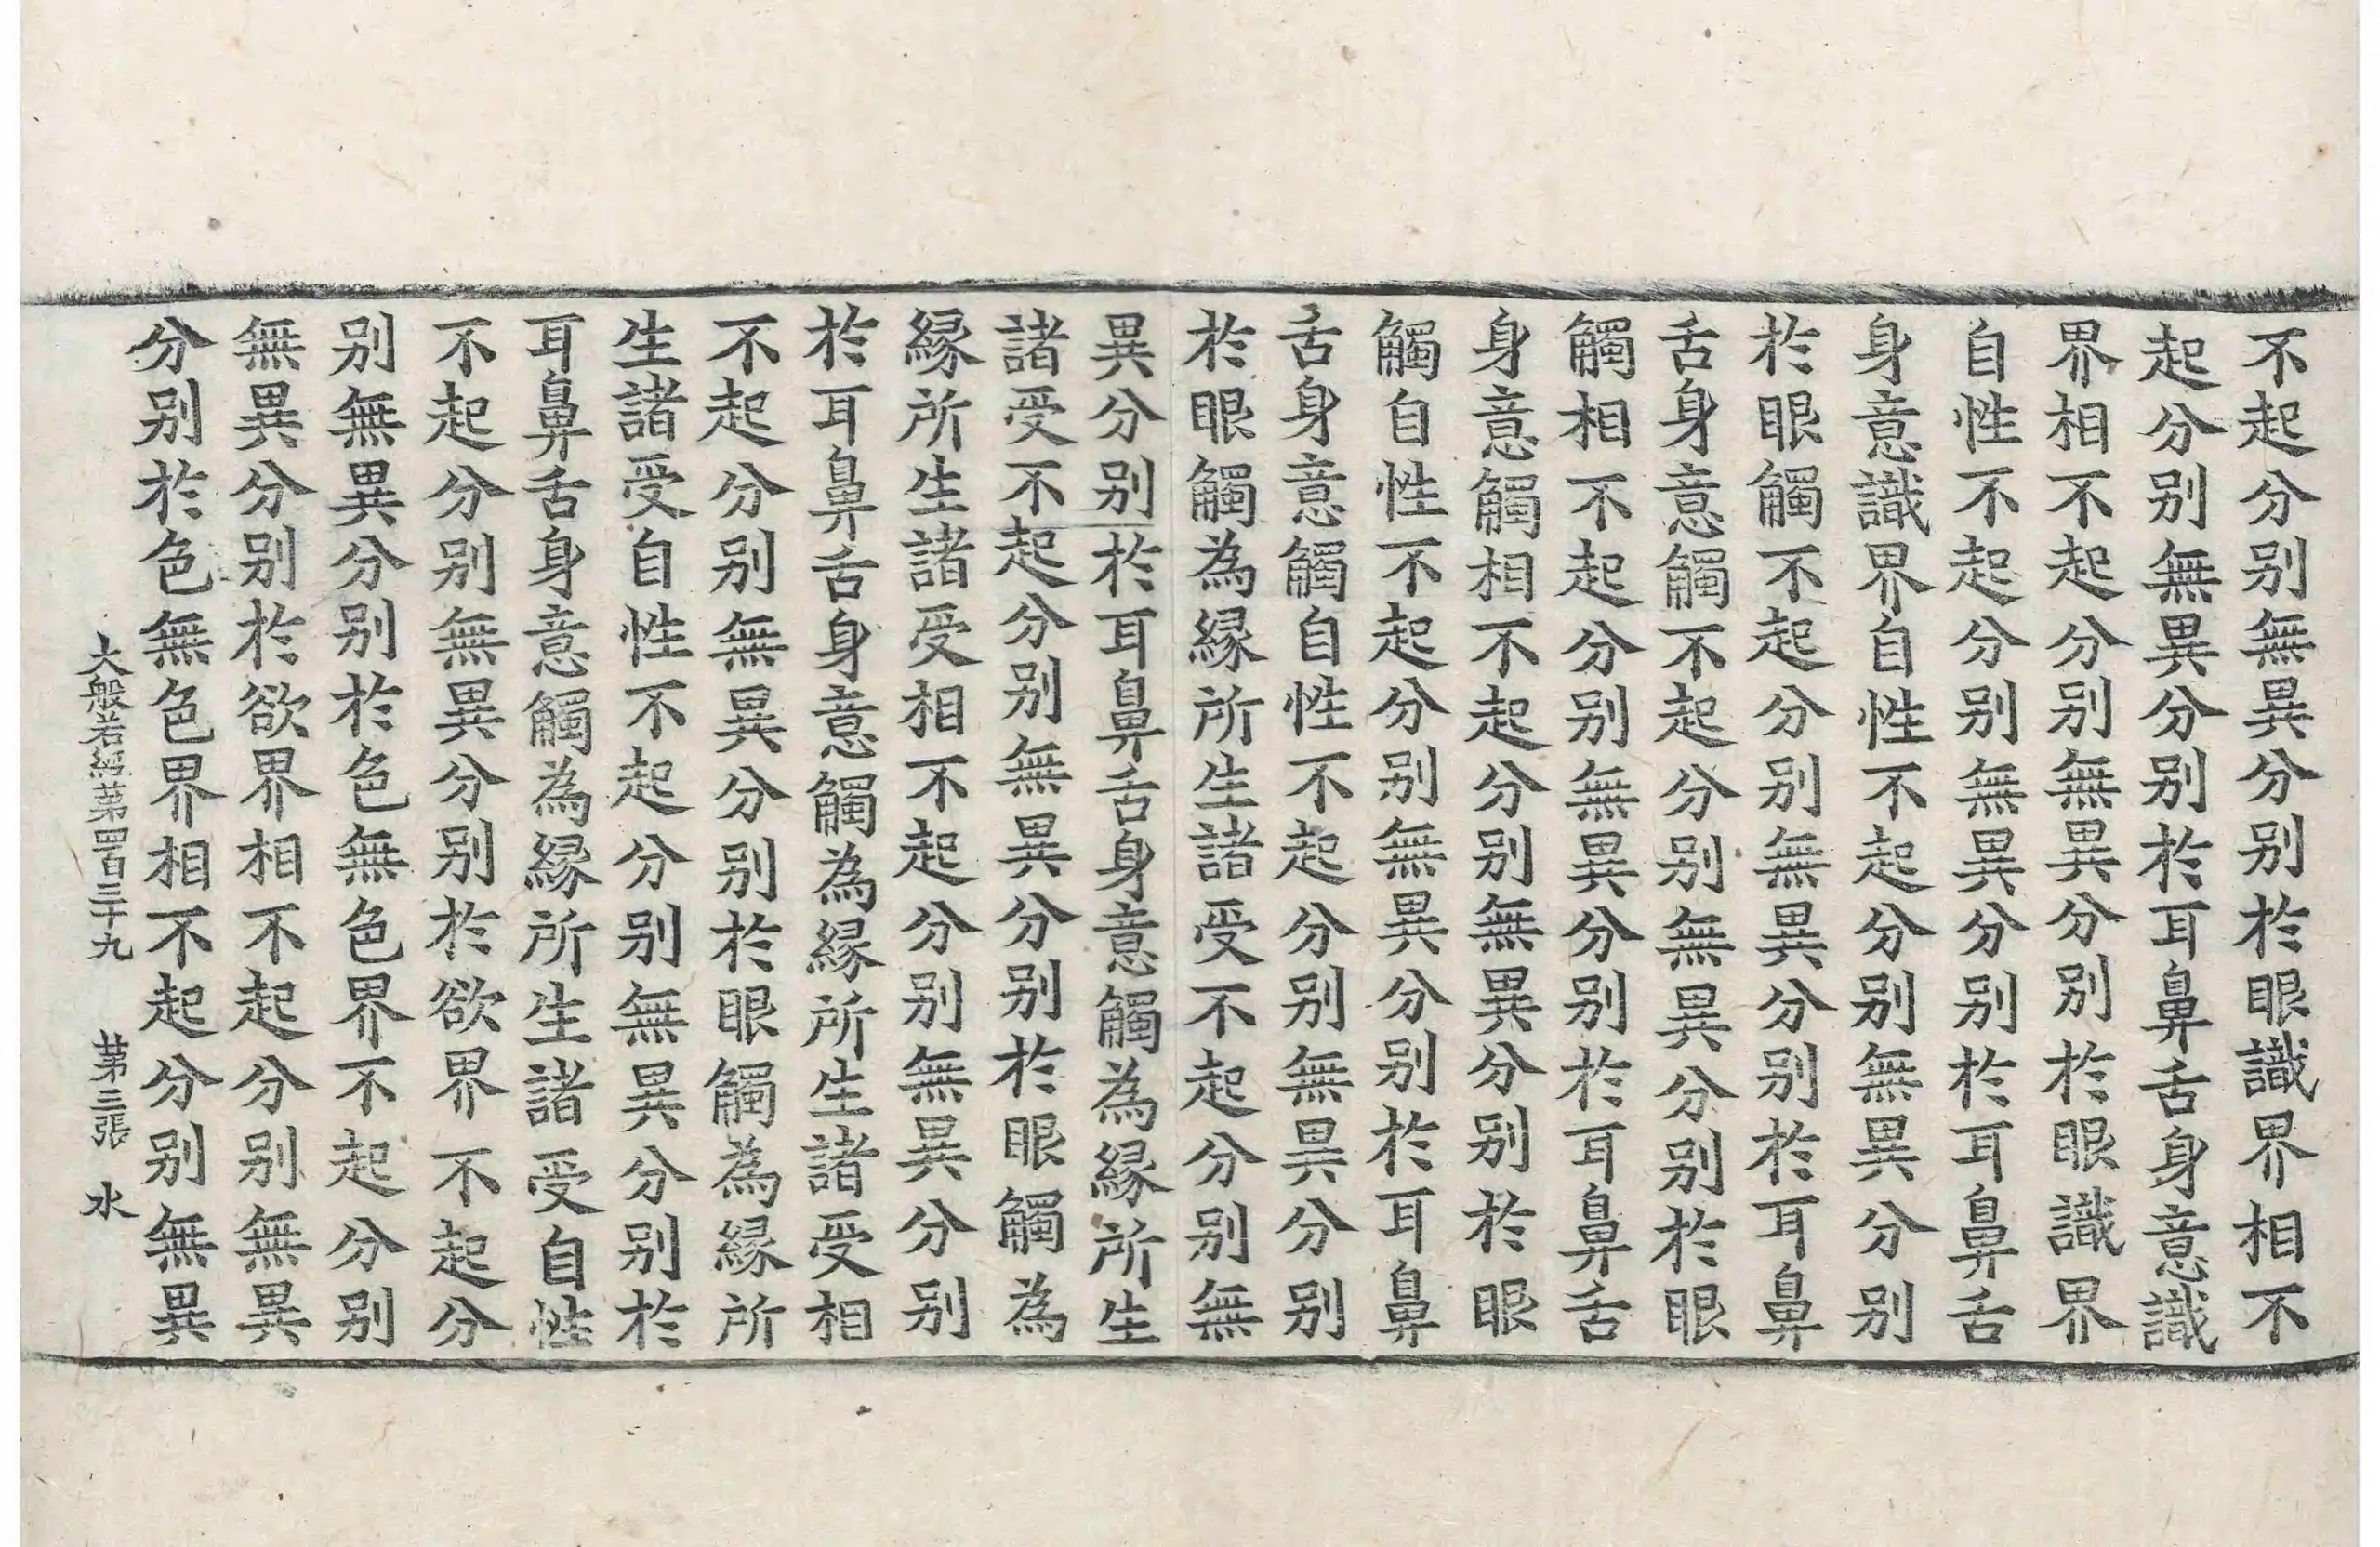 不起分别無異分别於眼識界相不
起分别無異分别於耳鼻舌身意識
界相不起分别無異分别於眼識界
自性不起分别無異分别於耳鼻舌
身意識界自性不起分别無異分别
於眼觸不起分别無異分别於耳鼻
舌身意觸不起分别無異分别於眼
觸相不起分别無異分别於耳鼻舌
身意觸相不起分别無異分别於眼
觸自性不起分别無異分别於耳鼻
舌身意觸自性不起分别無異分别
於眼觸為縁所生諸受不起分别無
異分别於耳鼻舌身意觸為縁所生
諸受不起分别無異分别於眼觸為
縁所生諸受相不起分别無異分别
於耳鼻舌身意觸為縁所生諸受相
不起分别無異分别於眼觸為縁所
生諸受自性不起分别無異分别於
耳鼻舌身意觸為縁所生諸受自性
不起分别無異分别於欲界不起分
别無異分别於色無色界不起分别
無異分别於欲界相不起分别無異
分别於色無色界相不起分别無異
大般若經苐四百三十九 苐三張 水